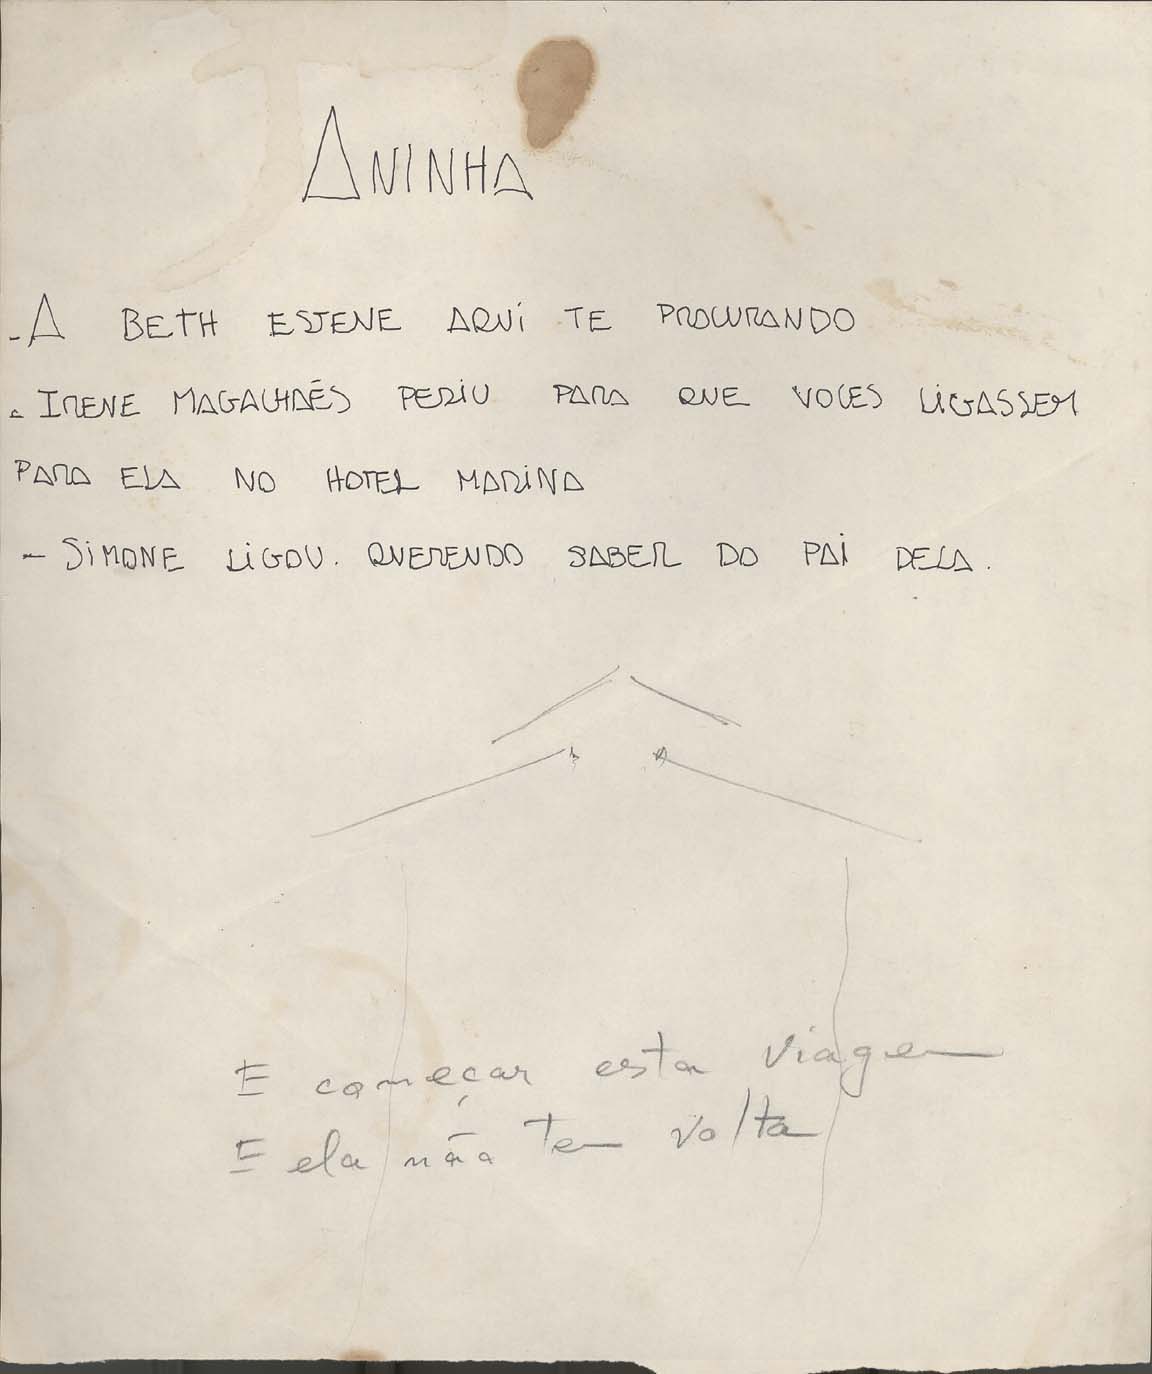 ANINHA
- A BETH ESTEVE AQUI TE PROCURANDO
- IRENE MAGALHÃES PEDIU PARA QUE VOCES LIGASSEM
PARA ELA NO HOTEL MARINA
- SIMONE LIGOU. QUERENDO SABER DO PAI DELA.
E começar esta viagem
E ela não tem volta